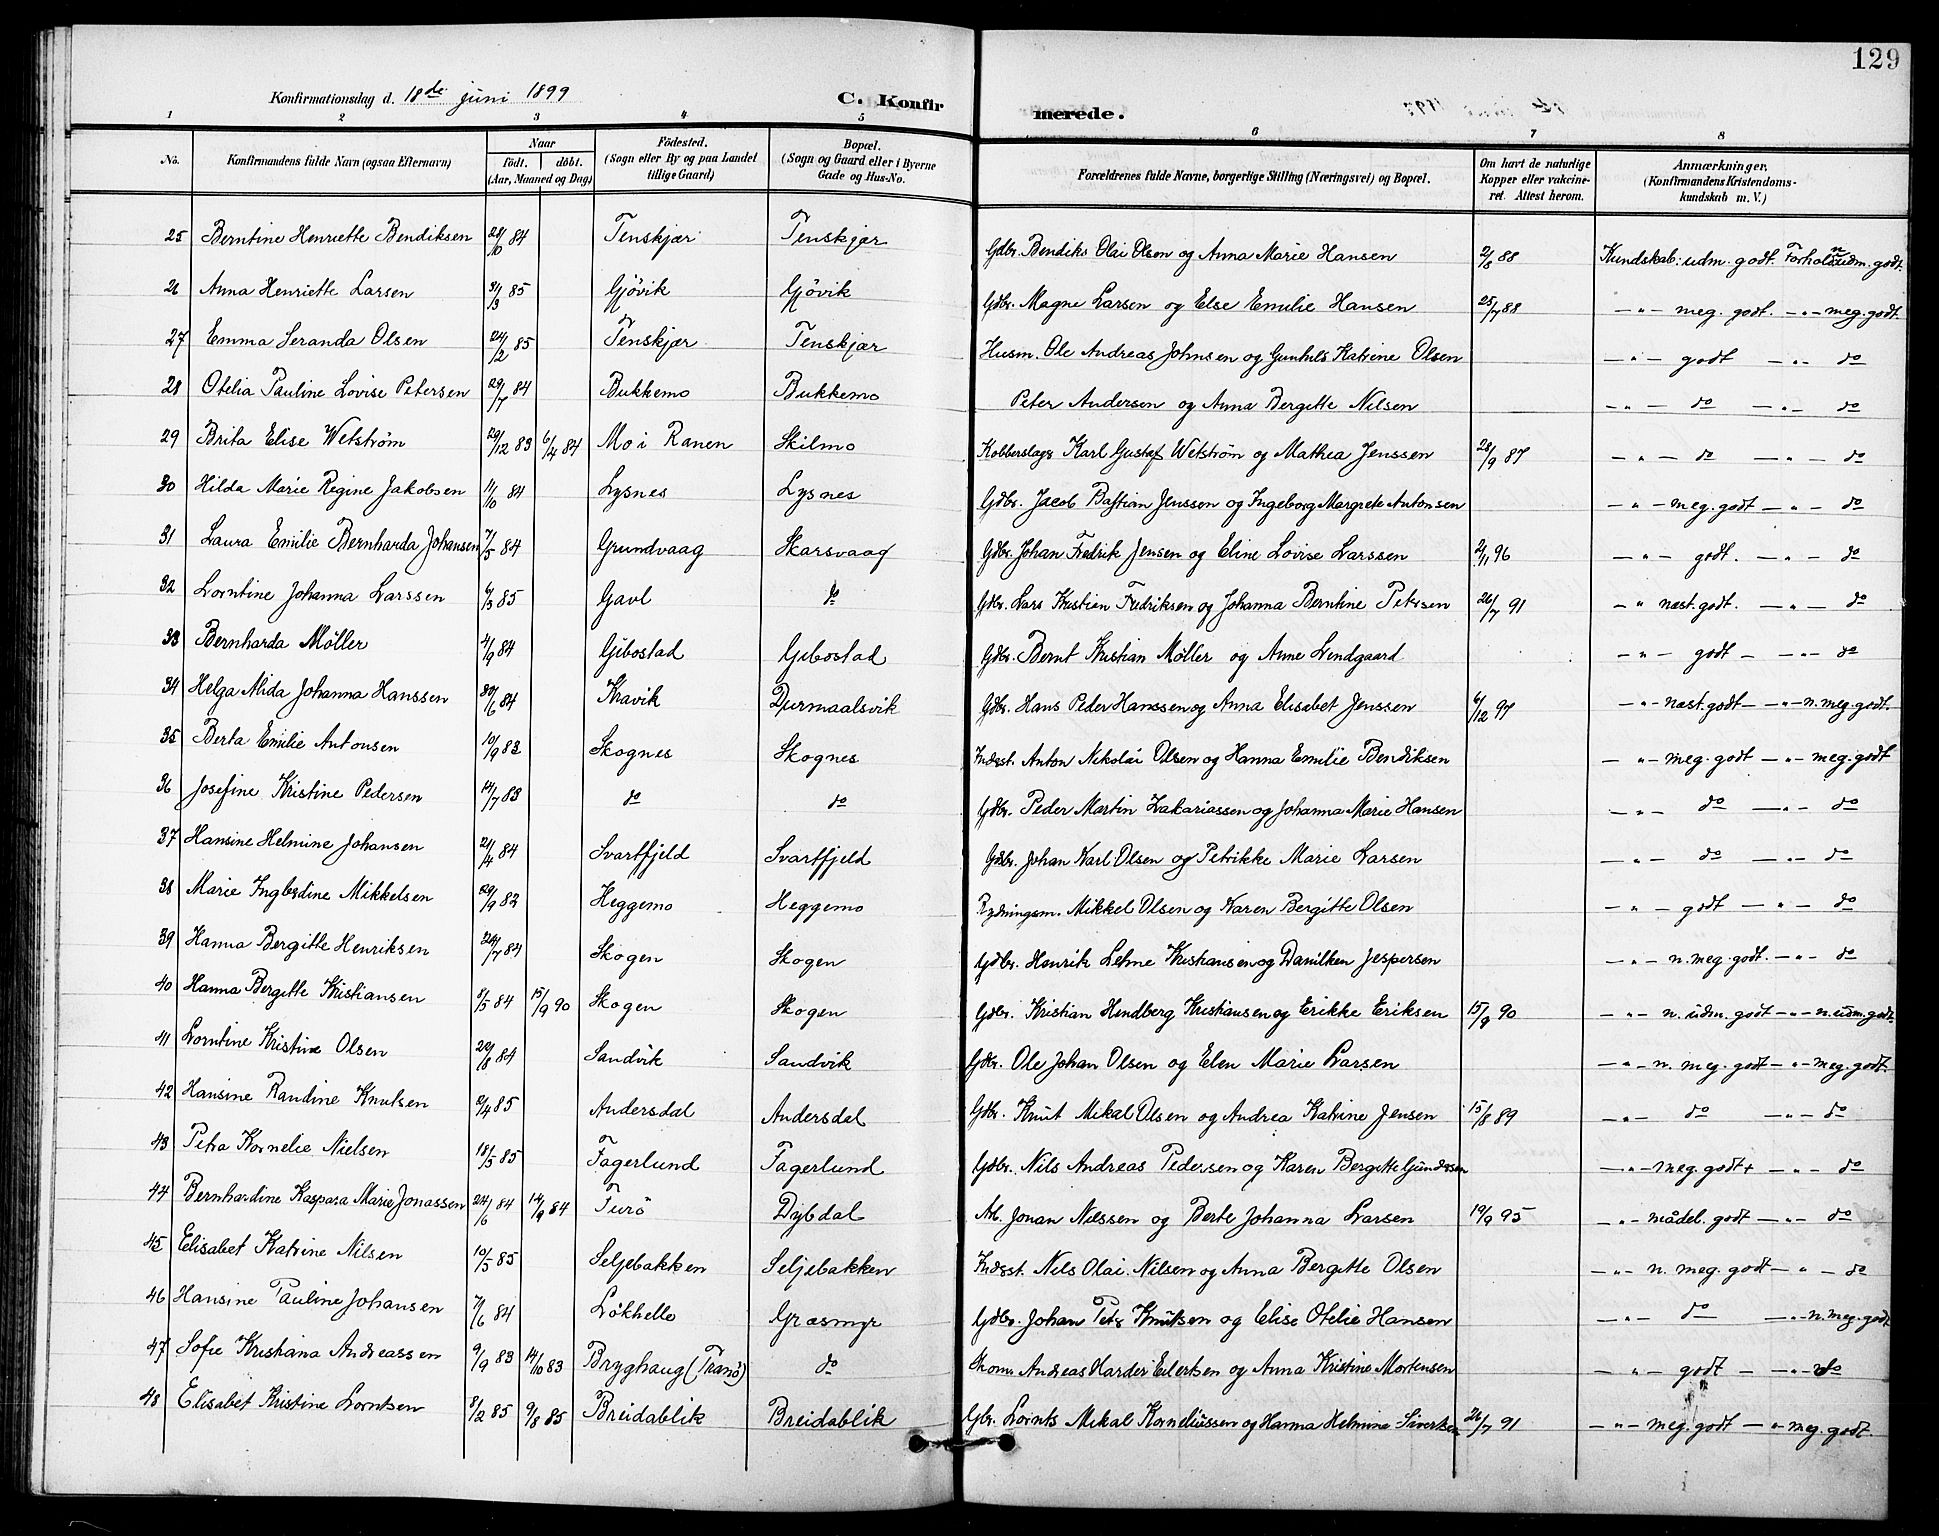 129
Konfirmationsdag d. 18de juni 1899 C. Konfirmerede.
1 2 3 4 5 6 7 8
No. Konfirmandens fulde Navn (ogsaa Efternavn) Naar födt. döbt. (Aar, Maaned og Dag) Födested. (Sogn eller By og paa Landet tillige Gaard) Bopæl. (Sogn og Gaard eller i Byerne Gade og Hus-No. Forældrenes fulde Navne, borgerlige Stilling (Næringsvei) og Bopæl. Om havt de naturlige Kopper eller vakcineret. Attest herom. Anmærkninger, (Konfirmandens Kristendomskundskab m. V.)
25 Berntine Henriette Bendiksen 28/10 84 Tenskjær Tenskjær Gdbr. Bendiks Olai Olsen og Anna Marie Hansen 2/8 88 Kundskab: udm. godt. Forhold n. udm. godt.
26 Anna Henriette Larsen 31/3 85 Gjövik Gjövik Gdbr. Magne Larsen og Else Emilie Hansen 25/7 88 — " — meg. godt. — " — meg. godt.
27 Emma Seranda Olsen 24/2 85 Tenskjær Tenskjær Husm. Ole Andreas Johnsen og Gunhild Katrine Olsen — " — godt — " — do
28 Otelia Pauline Lovise Petersen 29/7 84 Bukkemo Bukkemo Peter Andersen og Anna Bergitte Nilsen — " — do — " — do
29 Brita Elise Wetstrøm 29/12 83 6/4 84 Mo i Ranen Skilmo Kobberslager Karl Gustaf Wetstrøm og Mathea Jenssen 28/9 87 — " — do — " — do
30 Hilda Marie Regine Jakobsen 11/10 84 Lysnes Lysnes Gdbr. Jacob Bastian Jenssen og Ingeborg Margrete Antonsen — " — meg. godt — " — do
31 Laura Emilie Bernharda Johansen 7/5 84 Grundvaag Skarsvaag Gdbr. Johan Fredrik Jensen og Eline Lovise Larssen 2/11 96 — " — godt. — " — do
32 Lorntine Johanna Larssen 6/3 85 Gavl do Gdbr. Lars Kristian Fredriksen og Johanna Berntine Petersen 26/7 91 — " næst. godt. — " — do
33 Bernharda Møller 4/9 84 Gibostad Gibostad Gdbr. Bernt Kristian Møller og Anne Lindgaard — " — godt — — " — do
34 Helga Alida Johanna Hanssen 30/6 84 Kravik Djurmaalsvik Gdbr. Hans Peder Hanssen og Anna Elisabet Jenssen 6/12 97 — " — næst. godt — — " — n. meg. godt.
35 Berta Emilie Antonsen 10/9 83 Skognes Skognes Inderst. Anton Nikolai Olsen og Hanna Emilie Bendiksen — " — meg. godt — " — meg. godt
36 Josefine Kristine Pedersen /7 83 do do Gdbr. Peder Martin Zakariassen og Johanna Marie Hansen — " — do — " — do
37 Hansine Helmine Johansen 21/4 84 Svartfjeld Svartfjeld Gdbr. Johan Karl Olsen og Petrikke Marie Larsen — " — do — " — do
38 Marie Ingberdine Mikkelsen 29/9 82 Heggemo Heggemo Rydningsm. Mikkel Olsen og Karen Bergitte Olsen — " — godt — " — do
39 Hanna Bergitte Henriksen /7 84 Skogen Skogen Gdbr. Henrik Lehne Kristiansen og Danilken Jespersen — " — n. meg. godt. — " — do
40 Hanna Bergitte Kristiansen 8/5 84 15/9 90 Skogen Skogen Gdbr. Kristian Hendberg Kristiansen og Erikke Eriksen 15/9 90 — " — n. udm. godt — " — n. udm. godt.
41 Lorntine Kristine Olsen 20/8 84 Sandvik Sandvik Gdbr. Ole Johan Olsen og Elen Marie Larsen — " — n. meg. godt — " — meg. godt.
42 Hansine Randine Knutsen /4 85 Andersdal Andersdal Gdbr. Knut Mikal Olsen og Andrea Katrine Jensen 15/8 89 — " — do — " — do
43 Petra Kornelie Nielsen 18/5 85 Fagerlund Fagerlund Gdbr. Nils Andreas Pedersen og Karen Bergitte Gundersen — " — meg. godt + — " — do
44 Bernhardine Kaspara Marie Jonassen 24/6 84 14/9 84 Turö Dybdal Arb. Jonan Nilssen og Berte Johanna Larsen 19/9 95 — " — mådel. godt — " — do
45 Elisabet Katrine Nilsen 10/5 85 Seljebakken Seljebakken Inderst. Nils Olai Nilsen og Anna Bergitte Olsen — " — n. meg. godt — " — do
46 Hansine Pauline Johansen 7/6 84 Lökhelle Græsmyr Gdbr. Johan Peter Knutsen og Elise Otelie Hansen — " — do — " — n. meg. godt
47 Sofie Kristiana Andreassen 9/9 83 14/10 83 Bryghaug (Tranö) do Skom. Andreas Harder Eilertsen og Anna Kristine Mortensen — " — godt — — " — do
48 Elisabet Kristine Lorntsen 8/2 85 9/8 85 Breidablik Breidablik Gbr. Lornts Mikal Korneliussen og Hanna Helmine Sivertsen 26/7 91 — " — meg. godt — " — meg. godt.